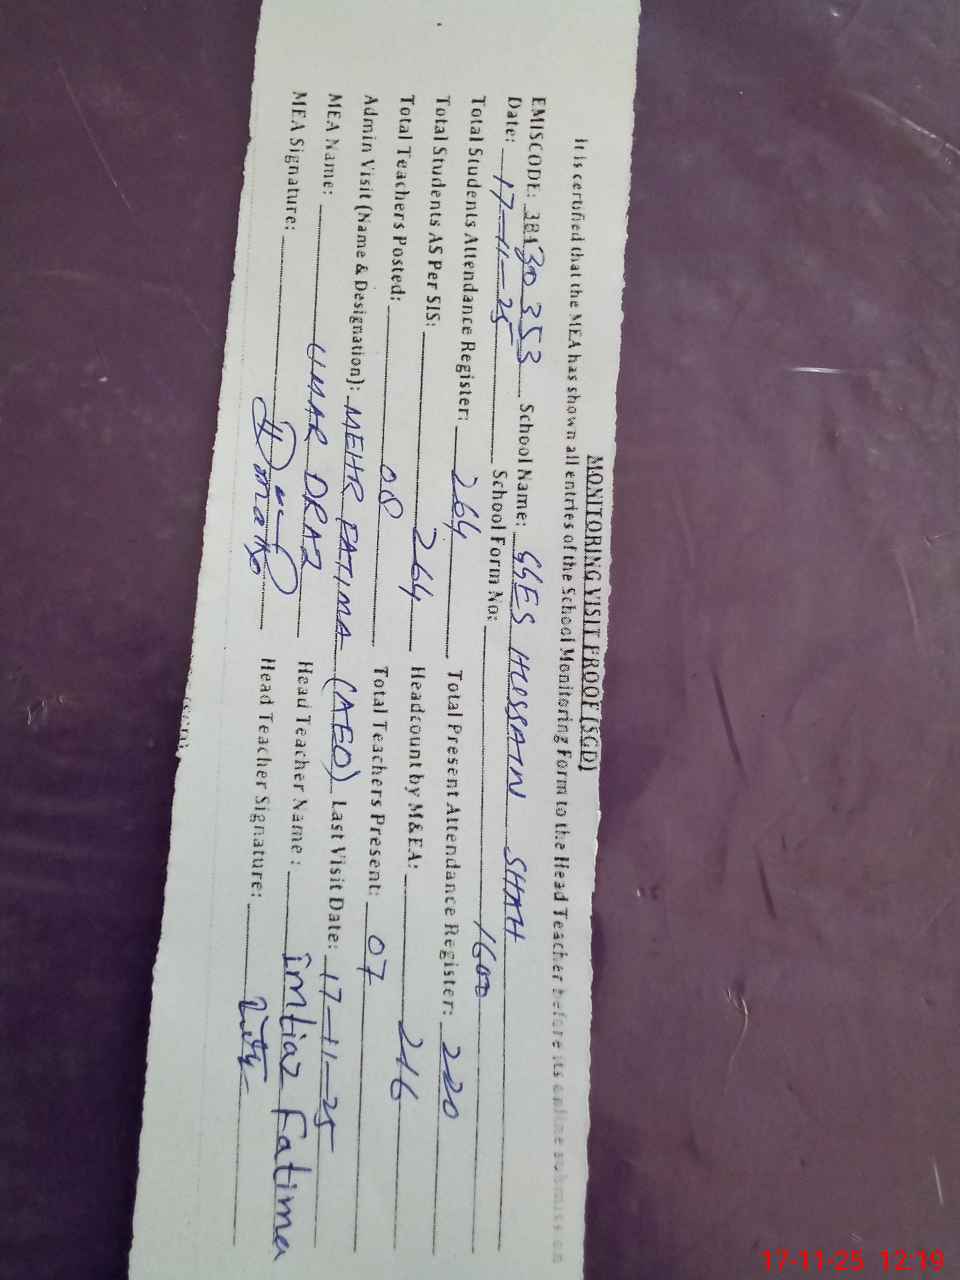 MONITORING VISIT PROOF (SGD)
It is certified that the MEA has shown all entries of the School Monitoring Form to the Head Teacher before its online submission
EMISCODE: 38130353 School Name: GGES HUSSAIN SHAH
Date: 17-11-25 School Form No: 1600
Total Students Attendance Register: 264 Total Present Attendance Register: 220
Total Students AS Per SIS: 264 Headcount by M&EA: 216
Total Teachers Posted: 08 Total Teachers Present: 07
Admin Visit (Name & Designation): MEHR FATIMA (AEO) Last Visit Date: 17-11-25
MEA Name: UMAR DRAZ Head Teacher Name: imtiaz Fatima
MEA Signature: Head Teacher Signature:
17-11-25 12:19